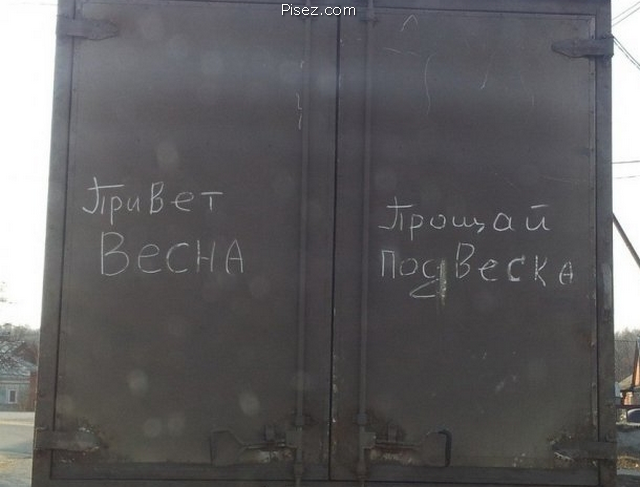 Pisez.com
Привет
Весна
Прощай
Подвеска